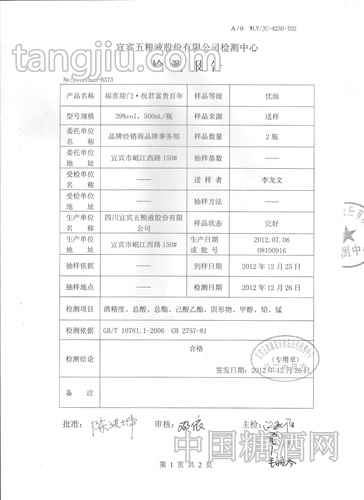 A/0 WLY/JC-4230-T02
宜宾五粮液股份有限公司检测中心
检测报告
产品名称 福喜迎门·祝君富贵百年 样品等级 优级
型号规格 39%vol,500mL/瓶 样品来源 送样
委托单位名称 品牌经销商品牌事务部 样品数量 2瓶
委托单位地址 宜宾市岷江西路150# 抽样基数 ——
受检单位名称 —— 送样者 李龙文
受检单位地址 —— 抽样方法 ——
生产单位名称 四川宜宾五粮液股份有限公司 样品状态 完好
生产单位地址 宜宾市岷江西路150# 生产日期或批号 2012.07.06 08100916
抽样依据 —— 到样日期 2012年12月25日
抽样地点 —— 检测日期 2012年12月26日
检测项目 酒精度、总酸、总酯、己酸乙酯、固形物、甲醇、铅、锰
检测依据 GB/T 10781.1-2006 GB 2757-81
检测结论 合格
(专用章)
签发日期:2012年12月26日
备注 ——
批准: 审核: 主检:
第1页共2页
中国糖酒网
tangjiu.com